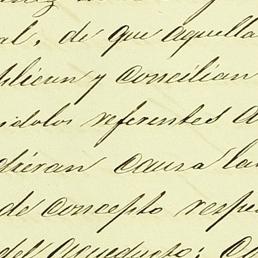 al, de que aquella
plican y concilian
idolos referentes a
dieran causa la
de concepto respe
del Acueducto; C